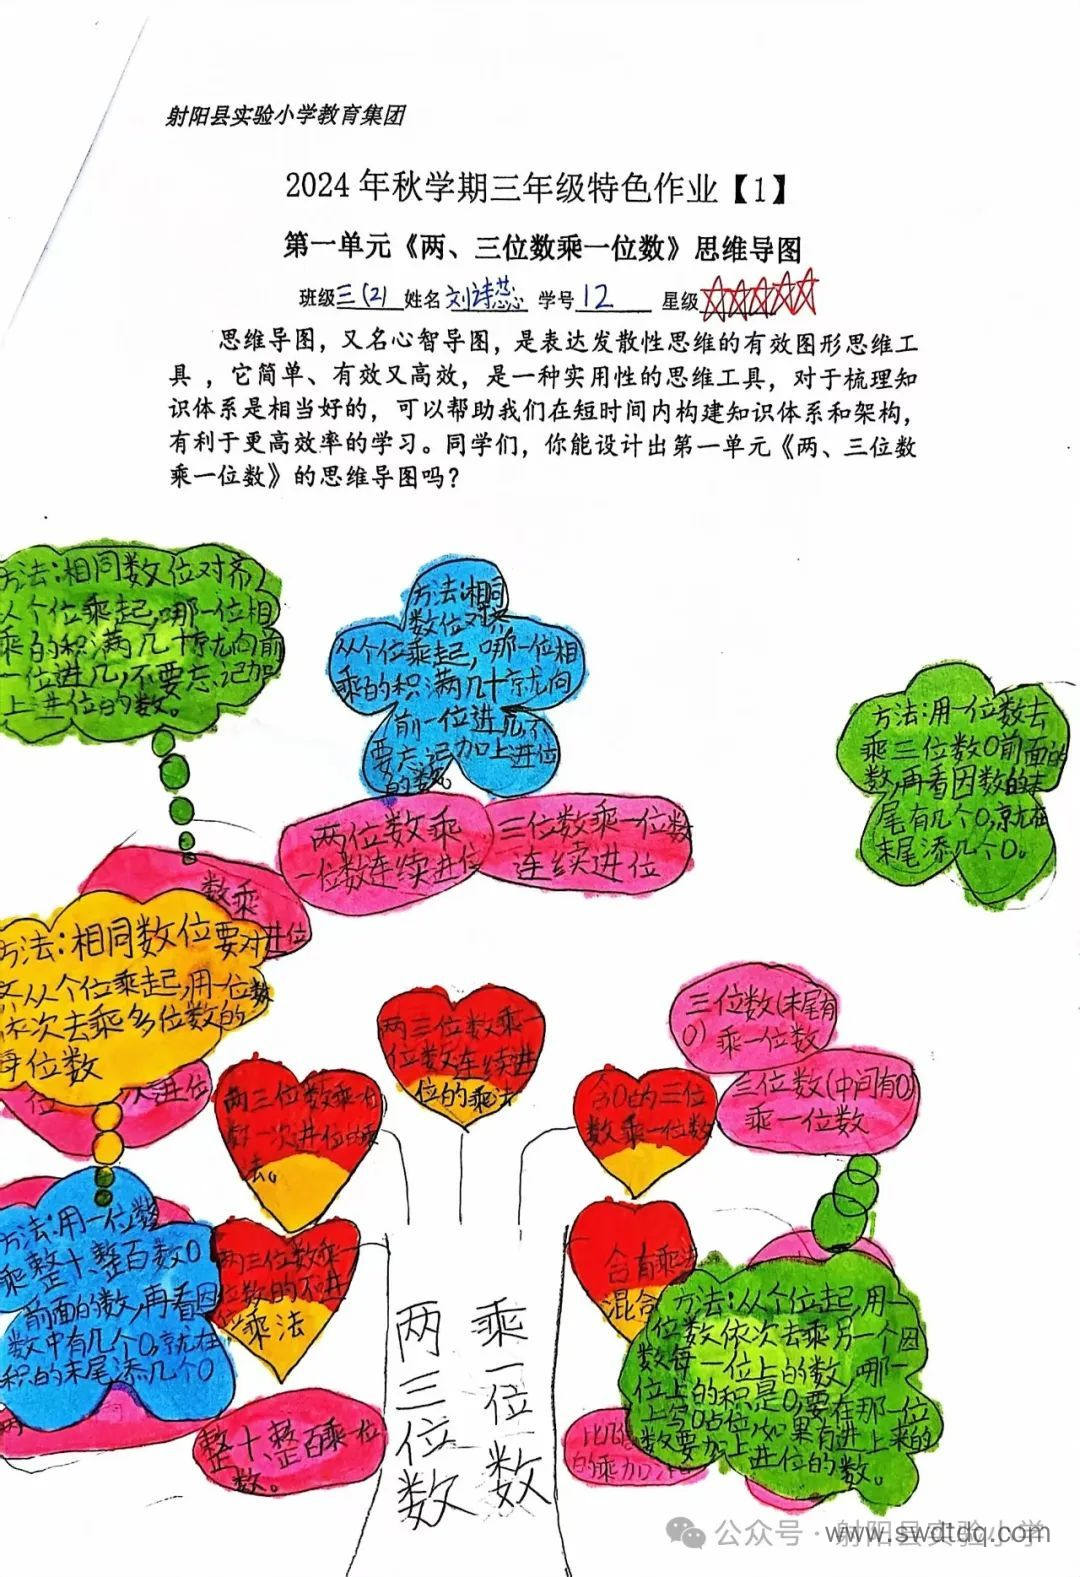 射阳县实验小学教育集团
2024年秋学期三年级特色作业【1】
第一单元《两、三位数乘一位数》思维导图
班级三(2) 姓名刘诗蕊 学号12 星级
思维导图，又名心智导图，是表达发散性思维的有效图形思维工
具 ，它简单、有效又高效，是一种实用性的思维工具，对于梳理知
识体系是相当好的，可以帮助我们在短时间内构建知识体系和架构，
有利于更高效率的学习。同学们，你能设计出第一单元《两、三位数
乘一位数》的思维导图吗？
方法：相同数位对齐，
从个位乘起，哪一位相
乘的积满几十就向前
一位进几，不要忘记加
上进位的数。
方法：相同
数位对齐
从个位乘起，哪一位相
乘的积满几十就向
前一位进几，不
要忘记加上进位
的数。
方法：用一位数去
乘三位数0前面的
数，再看因数的末
尾有几个0，就在
末尾添几个0。
两位数乘
一位数连续进位
三位数乘一位数
连续进位
数乘
进位
方法：相同数位要对
齐从个位乘起，用一位数
依次去乘多位数的
每位数
位
次进位
两三位数乘一
位数连续进
位的乘法
三位数(末尾有
0)乘一位数
三位数(中间有0)
乘一位数
两三位数乘一位
数一次进位的乘
法。
含0的三位
数乘一位数
方法：用一位数
乘整十整百数0
前面的数，再看因
数中有几个0，就在
积的末尾添几个0
两
两三位数乘一
位数的不进
位乘法
含有乘法
混合
方法：从个位起，用一
位数依次去乘另一个因
数每一位上的数，哪一
位上的积是0，要在那一位
上写0占位，如果有进上来的
数要加上进位的数。
整十整百乘一位
数。
的乘加
两三位数
乘一位数
公众号 · 射阳县实验小学
www.swdtdq.com